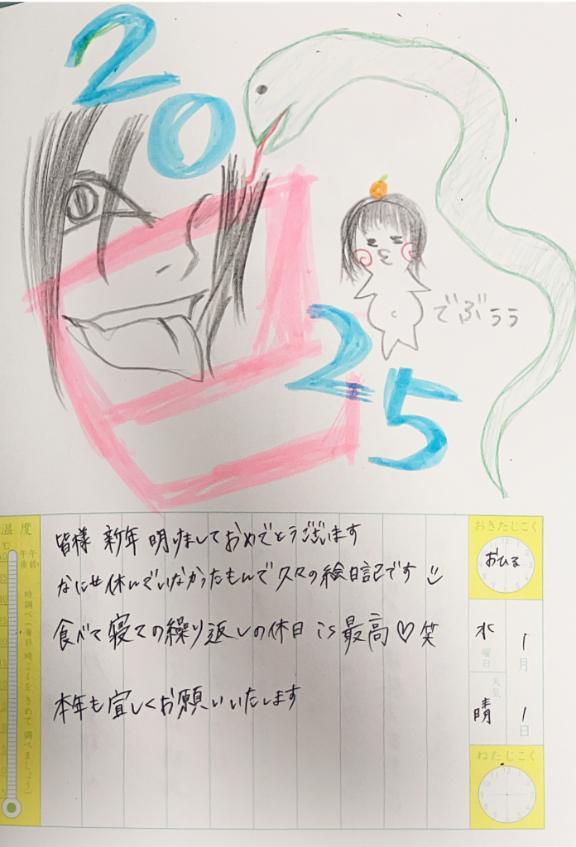 2025
でぶぅぅ
皆様 新年 明けましておめでとうございます
なにせ休んでいなかったもんで久々の絵日記です
食べて寝ての繰り返しの休日 is 最高♡笑
本年も宜しくお願いいたします
温度
おきたじこく
おひる
水
曜日
1
月
天気
晴
1
日
ねたじこく